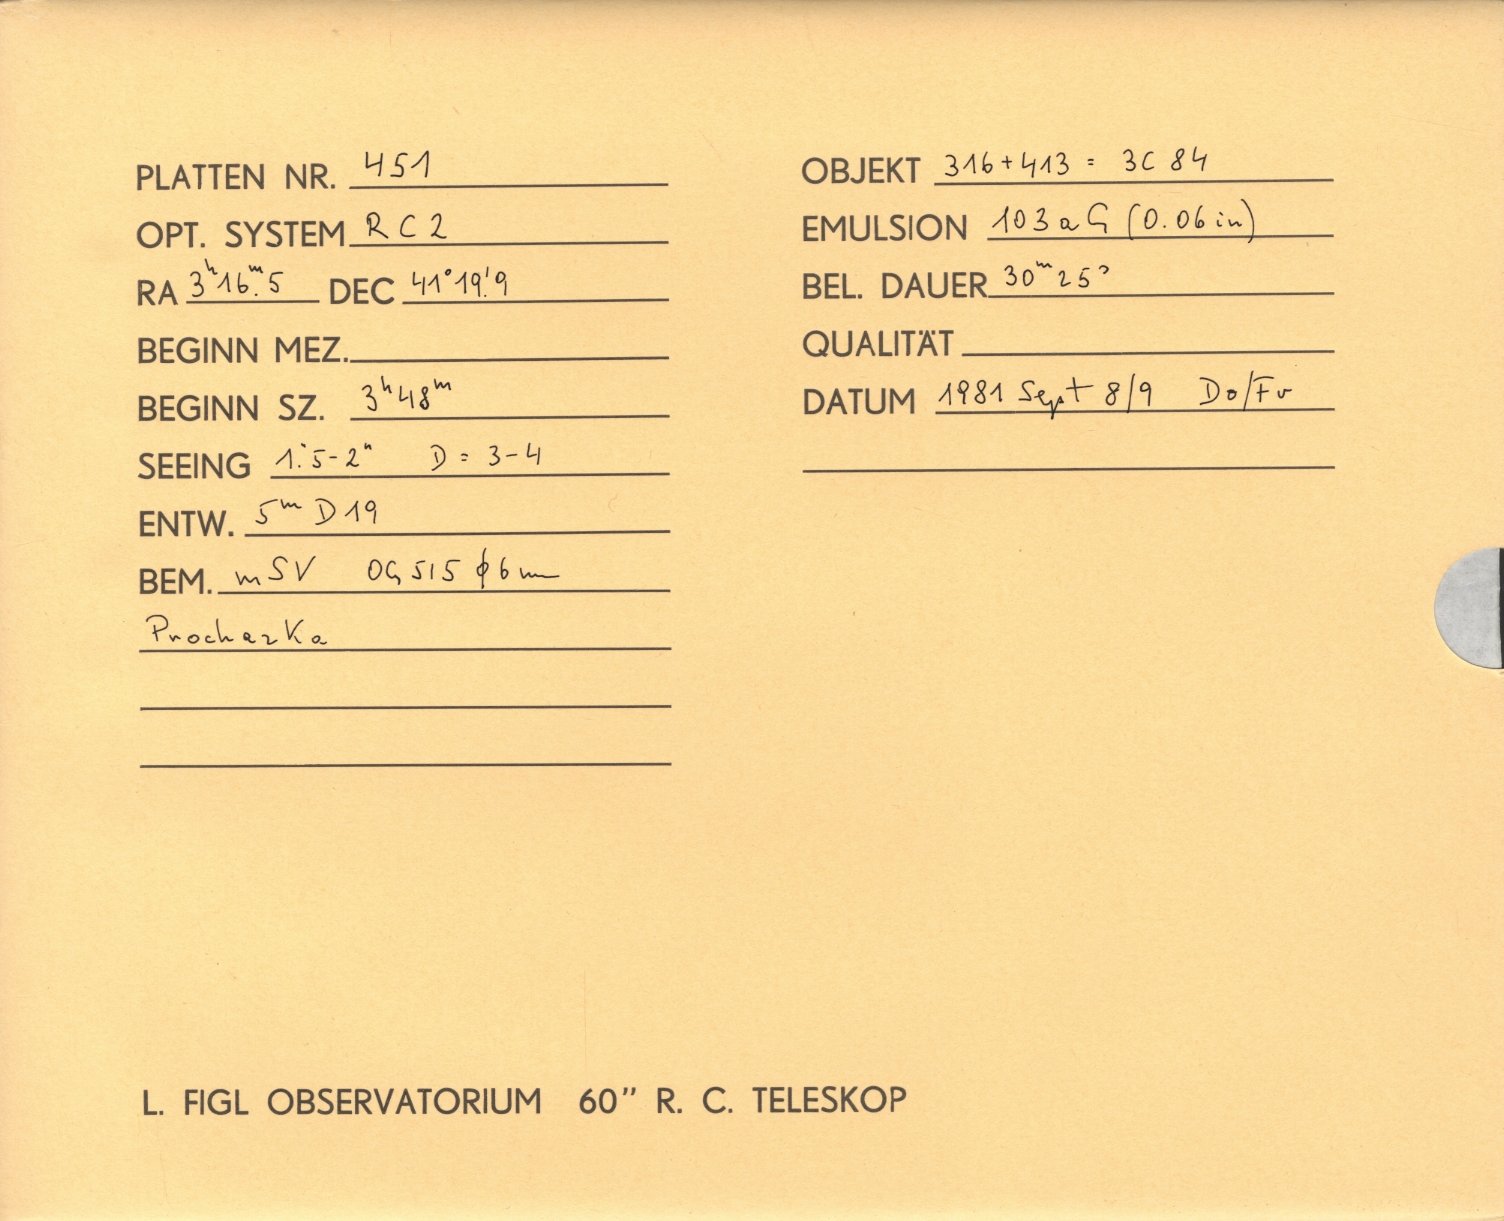 PLATTEN NR. 451
OPT. SYSTEM RC2
RA 3ʰ16ᵐ.5 DEC 41°19'.9
BEGINN MEZ.
BEGINN SZ. 3ʰ48ᵐ
SEEING 1".5-2" D = 3-4
ENTW. 5ᵐ D19
BEM. mSV OG515 ϕ6mm
Prochazka
OBJEKT 316+413 = 3C 84
EMULSION 103aG (0.06in)
BEL. DAUER 30ᵐ25ˢ
QUALITÄT
DATUM 1981 Sept 8/9 Do/Fr
L. FIGL OBSERVATORIUM 60" R. C. TELESKOP